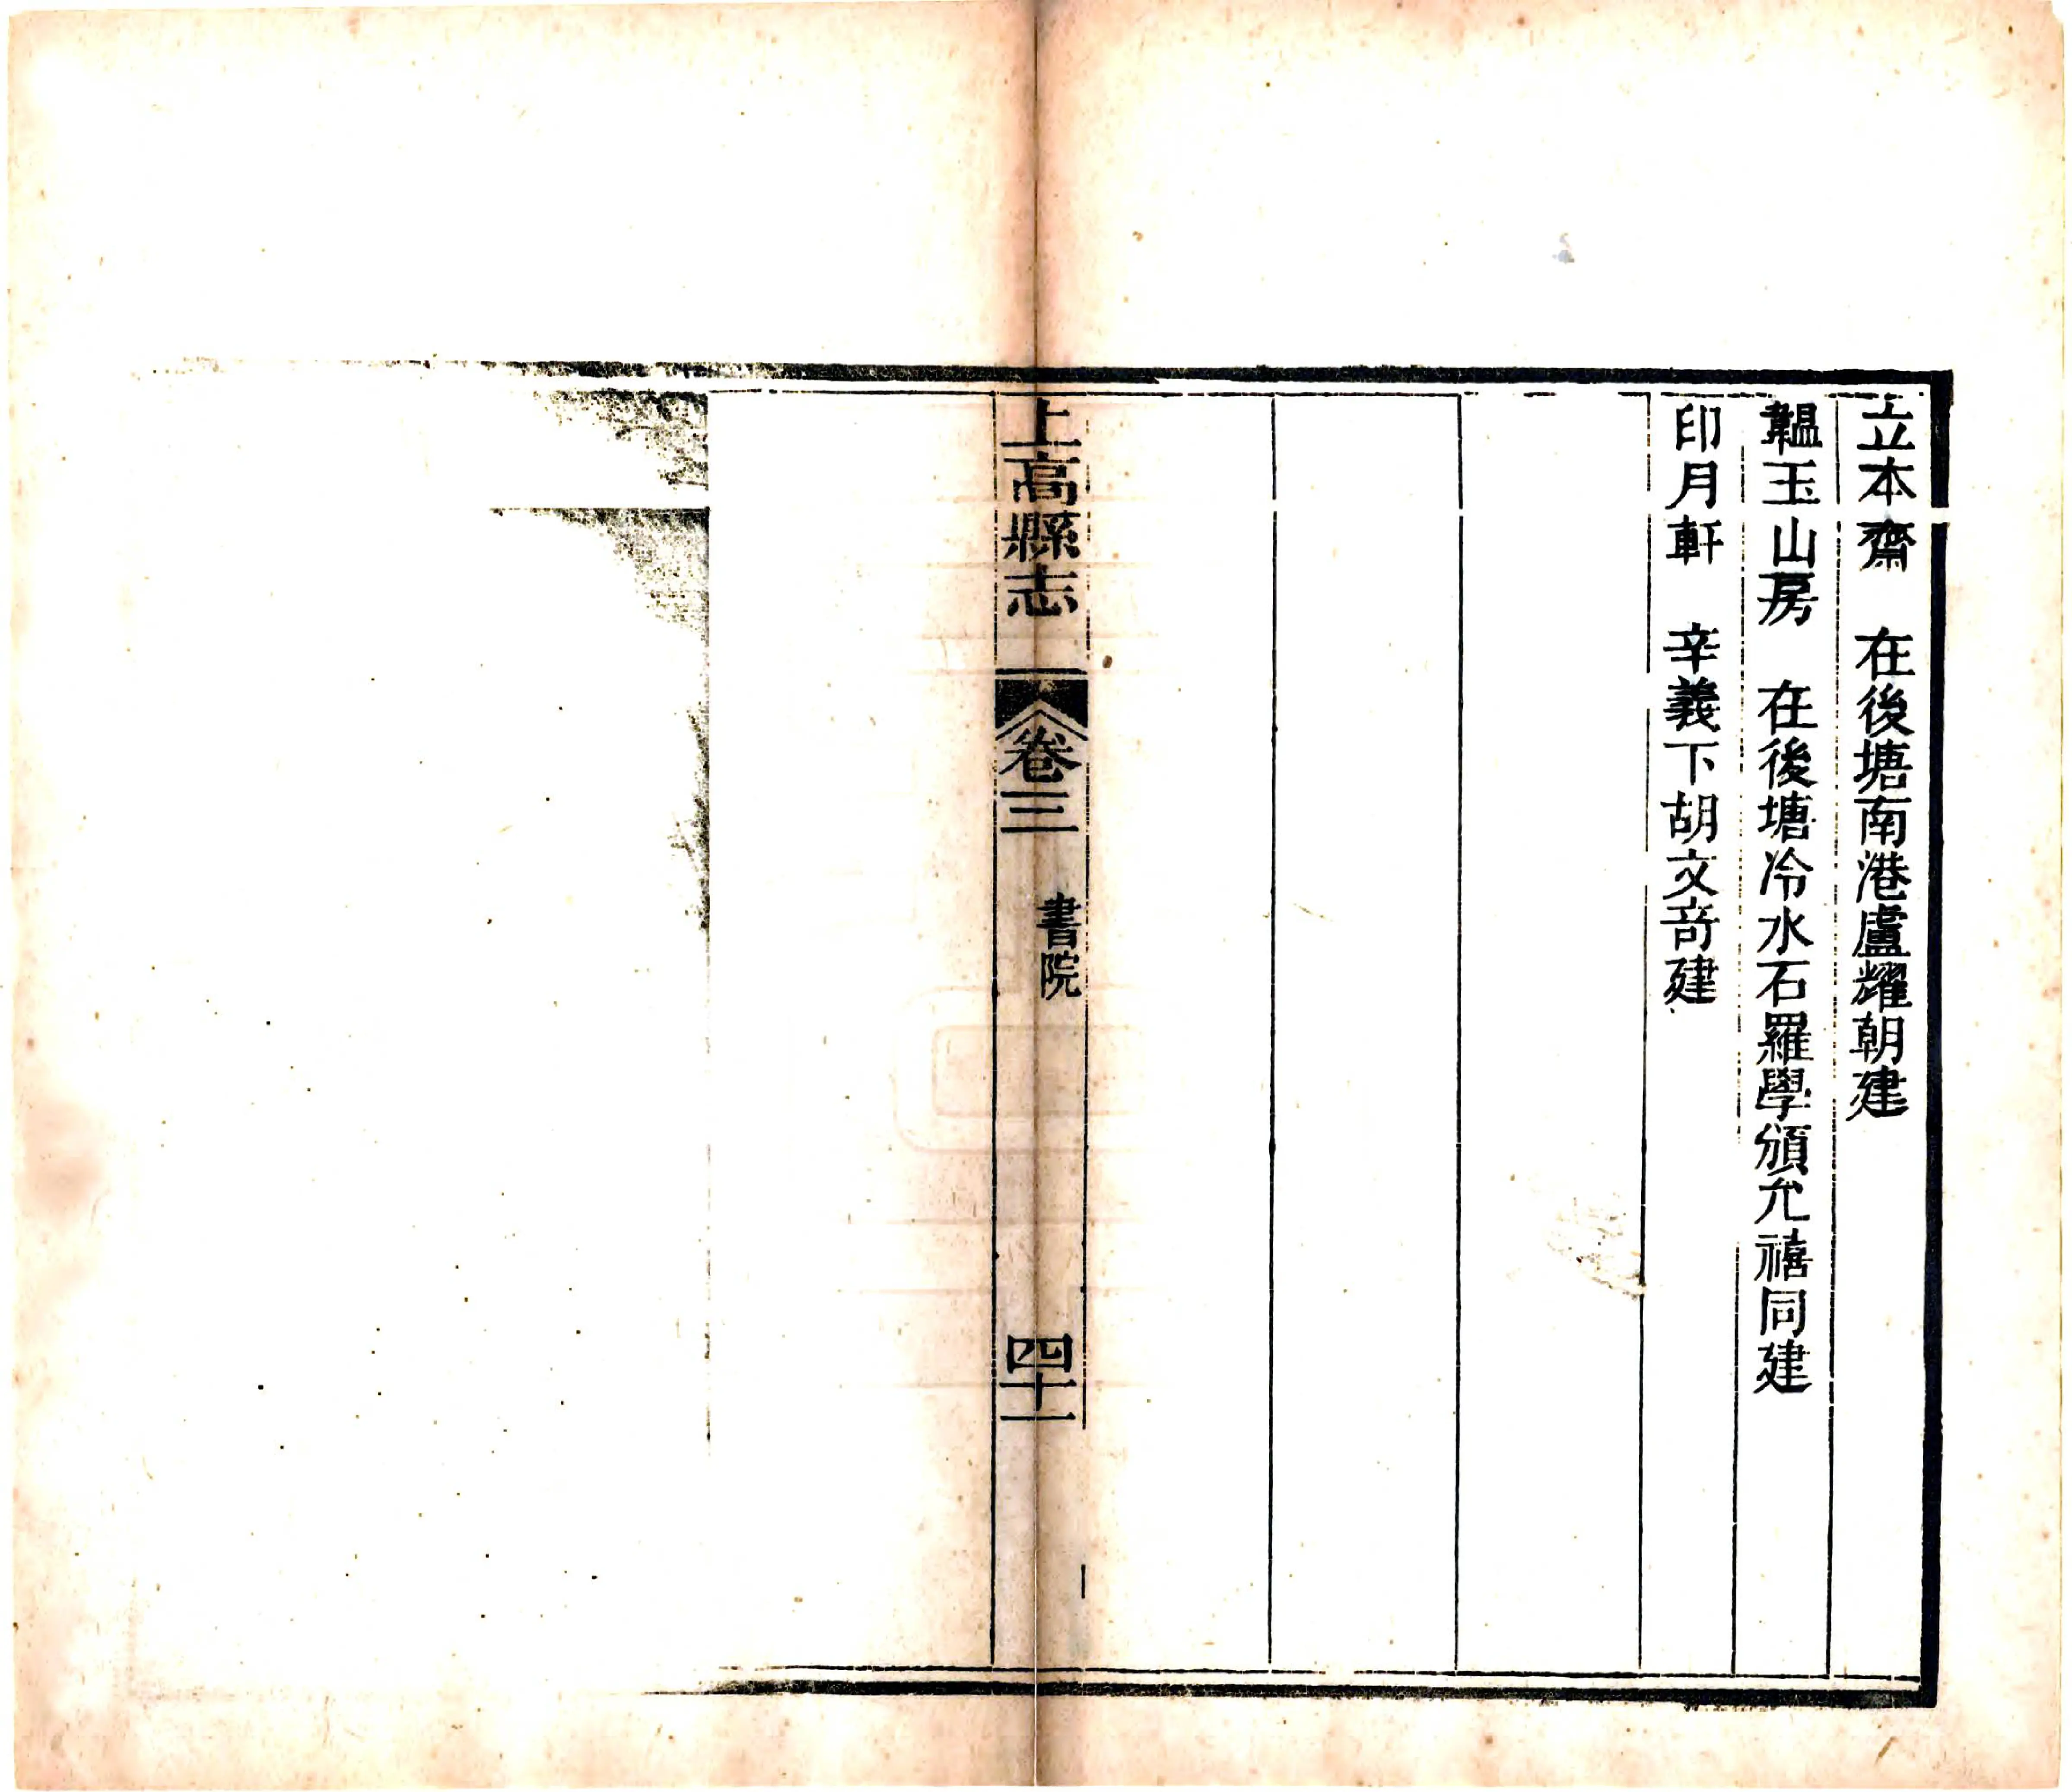 立本齋　在後塘南港盧耀朝建
韞玉山房　在後塘冷水石羅學頒允禧同建
印月軒　辛義下胡文竒建
上高縣志　卷三　書院　四十一